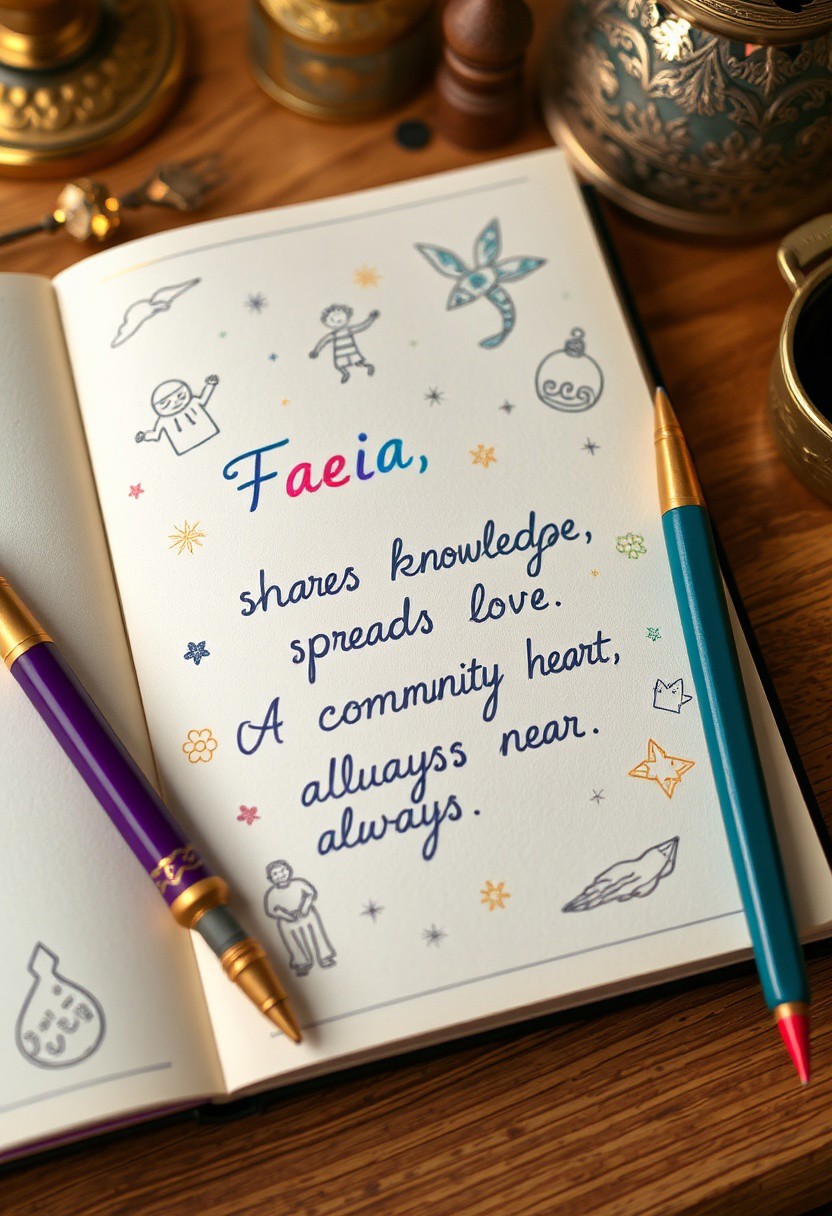 Faeia,
shares knowledpe,
spreads love.
A commnity heart,
alluayss near.
always.